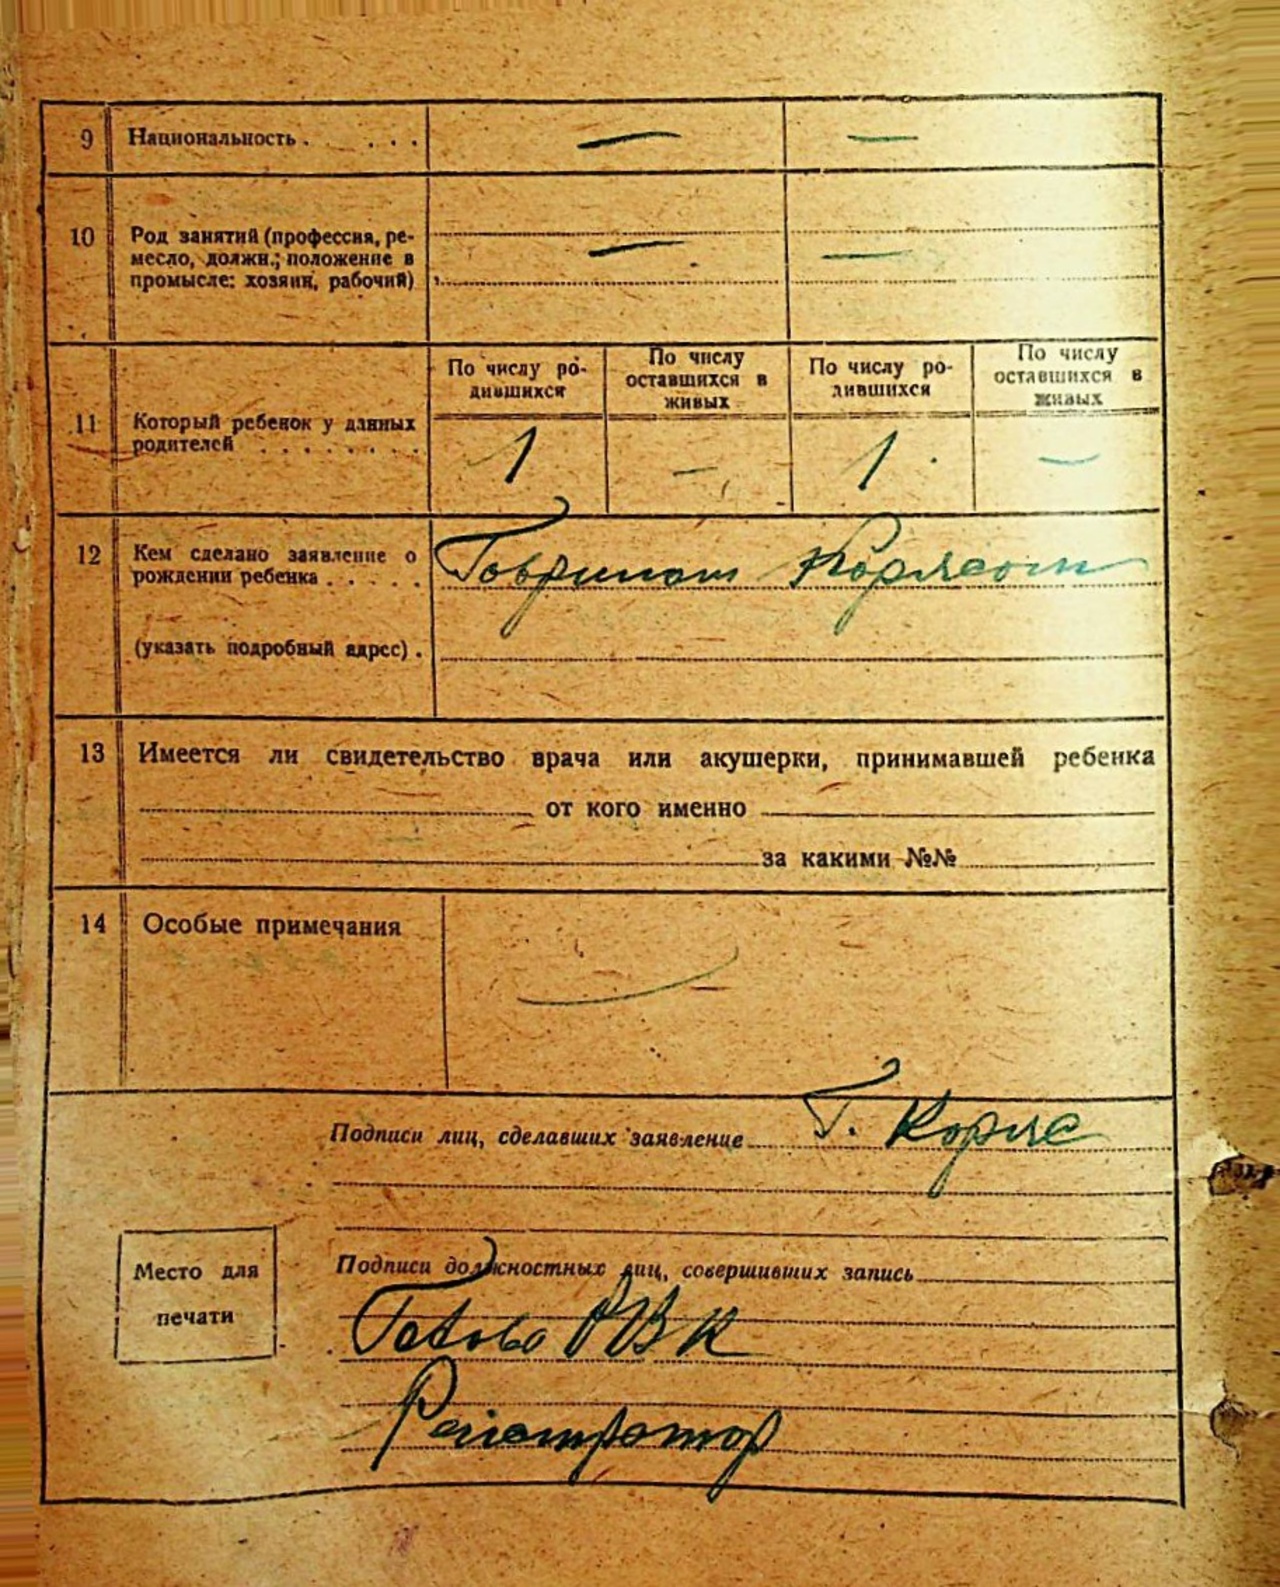 9 Национальность . . . . . — —
10 Род занятий (профессия, ре-
месло, должн.; положение в
промысле: хозяин, рабочий) — —
По числу ро-
дившихся
По числу
оставшихся в
живых
По числу ро-
дившихся
По числу
оставшихся в
живых
11 Который ребенок у данных
родителей . . . . . . . . 1 — 1 —
12 Кем сделано заявление о
рождении ребенка . . . . .
(указать подробный адрес) .
13 Имеется ли свидетельство врача или акушерки, принимавшей ребенка
от кого именно
за какими №№
14 Особые примечания
Подписи лиц, сделавших заявление Г.
Место для
печати
Подписи должностных лиц, совершивших запись
РВК
Регистратор